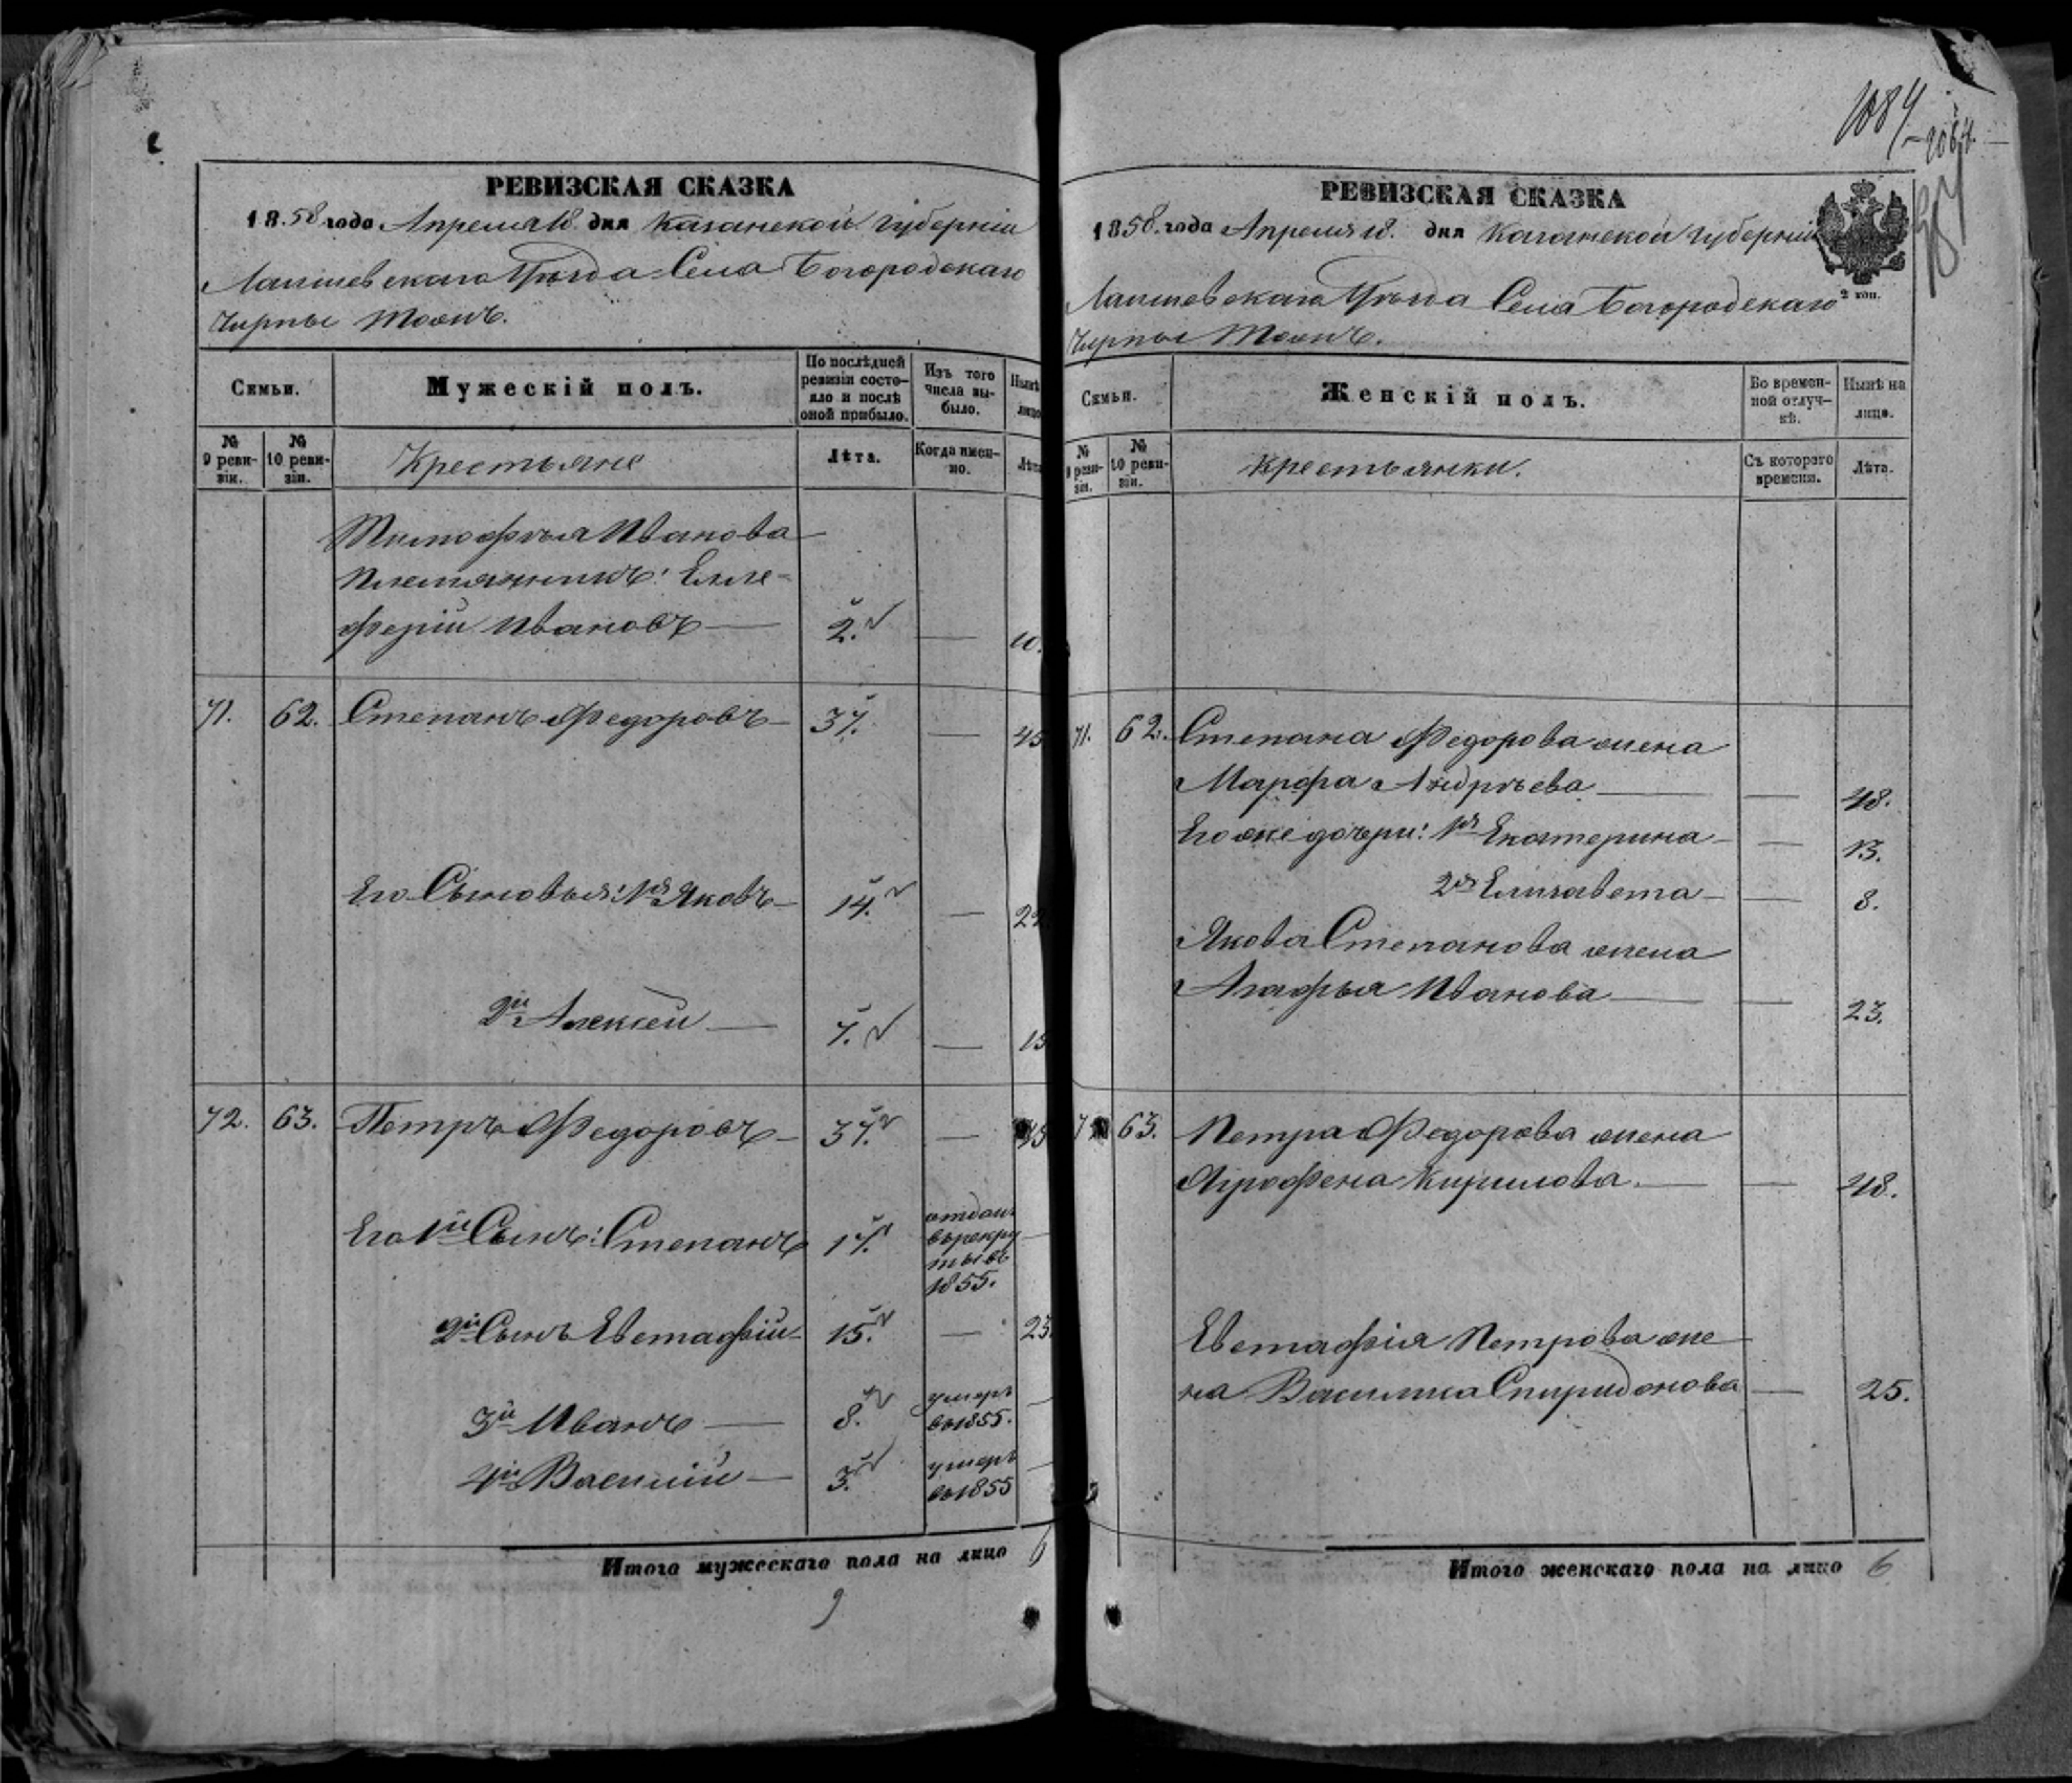 РЕВИЗСКАЯ СКАЗКА
1858 года Апреля 18. дня Казанской губерніи
Лаишевскаго Уѣзда Села Богородскаго
Чирпы тожъ.
Семьи.
Мужескій полъ.
По послѣдней ревизіи состо-
яло и послѣ оной прибыло.
Изъ того числа вы-
было.
Нынѣ
лицо
№ 9 реви-
зіи.
№ 10 реви-
зіи.
Крестьяне
Лѣта.
Когда имен-
но.
Лѣта
Тимофѣя Иванова
племянникъ: Елев-
ферій Ивановъ — 2. — 10.
71. 62. Степанъ Федоровъ — 37. — 45
Его Сыновья: 1й Яковъ — 14. — 22
2й Алексей — 7. — 15
72. 63. Петръ Федоровъ — 37. — 45
Его 1й Сынъ: Степанъ 17. отданъ
въ рекру
ты въ
1855. —
2й Сынъ Евстафій — 15. — 23
3й Иванъ — 8. умеръ
въ 1855. —
4й Василій — 3. умеръ
въ 1855 —
Итого мужескаго пола на лицо 6
9
1084
РЕВИЗСКАЯ СКАЗКА
1858. года Апреля 18. дня Казанской губерніи
2 коп.
Лаишевскаго Уѣзда Села Богородскаго
Чирпы тожъ.
Семьи.
Женскій полъ.
Во времен-
ной отлуч-
кѣ.
Нынѣ на
лицо.
№ 9 реви-
зіи.
№ 10 реви-
зіи.
крестьянки.
Съ котораго
времени.
Лѣта.
71. 62. Степана Федорова жена
Марфа Андрѣева — — 48.
Его же дочери: 1я Екатерина — — 13.
2я Елизавета — — 8.
Якова Степанова жена
Агафья Иванова — — 23.
72 63. Петра Федорова жена
Аграфена Кирилова. — — 48.
Евстафія Петрова же-
на Василиса Спиридонова — 25.
Итого женскаго пола на лицо 6